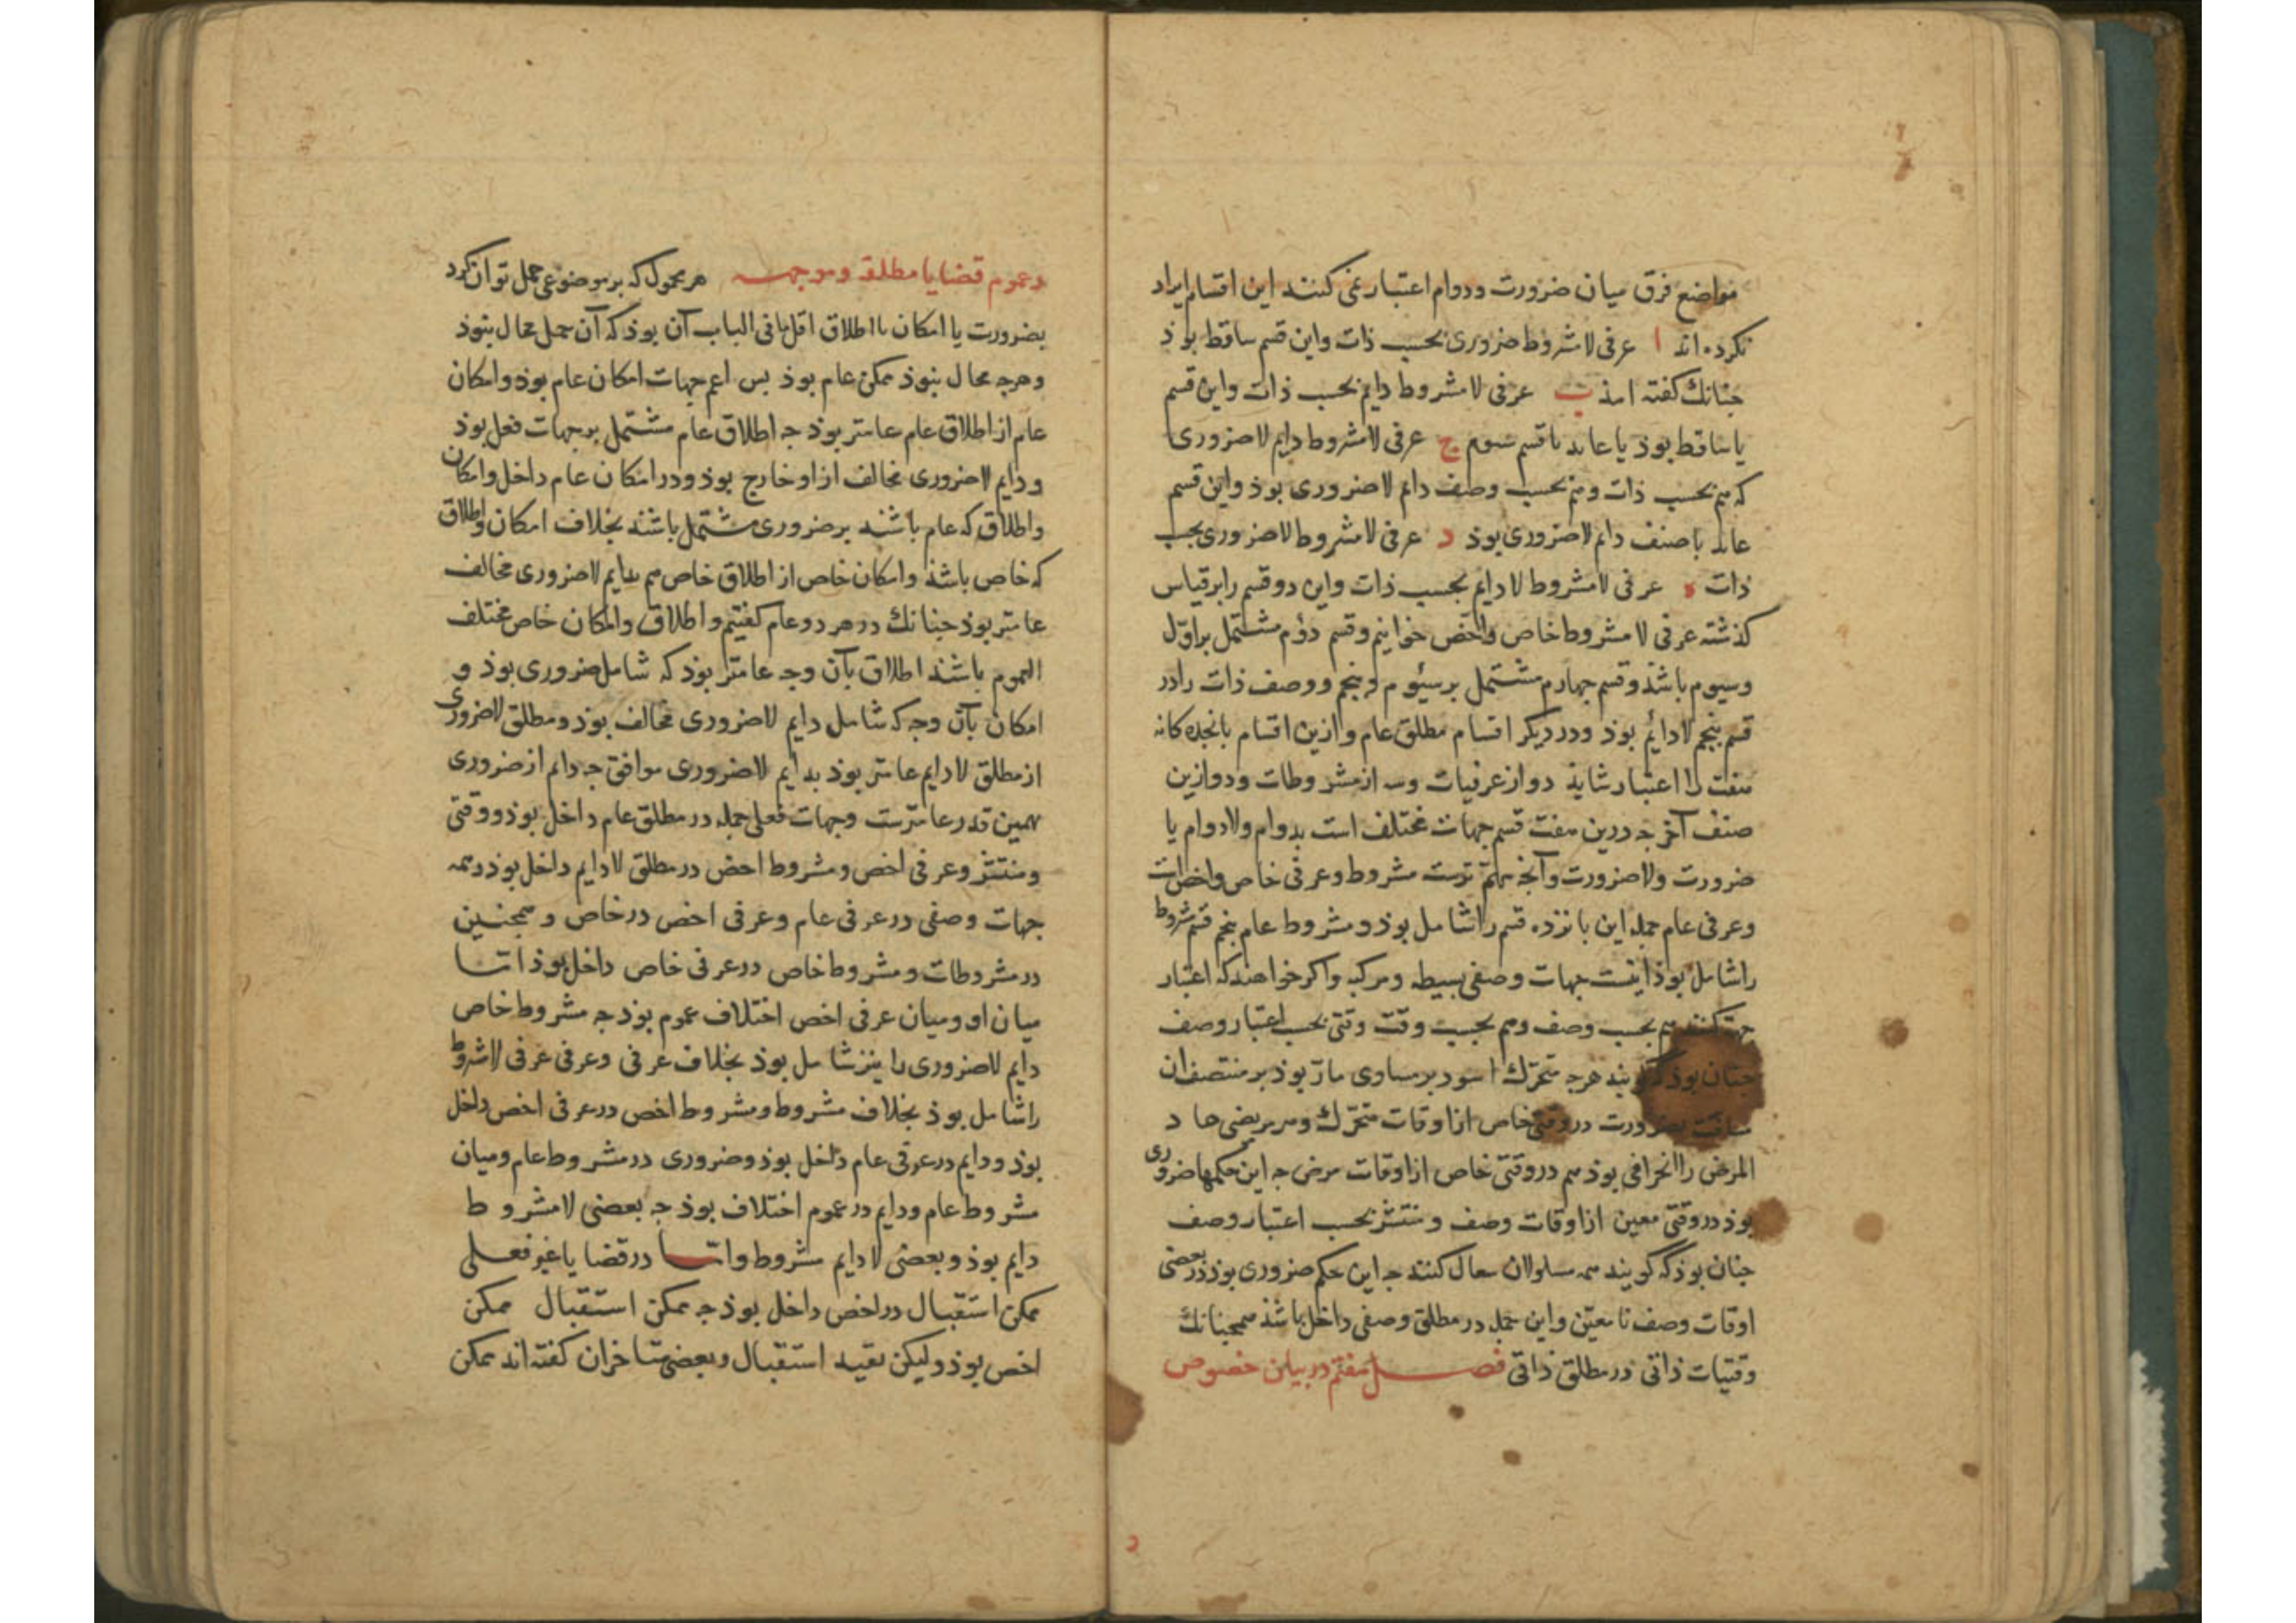 مواضع فرق میان ضرورت و دوام اعتبار نمی کنند این اقسام ایراد
نکرده اند ا عرفی لامشروط ضروری بحسب ذات واین قسم ساقط بوذ
جنانك کفته امذ ب عرفی لامشروط دایم بحسب ذات واین قسم
یا ساقط بوذ یا عاید با قسم سوم ج عرفی لامشروط دایم لاضروری
که هم بحسب ذات وهم بحسب وصف دایم لاضروری بوذ واین قسم
عاید با صنف دایم لاضروری بوذ د عرفی لامشروط لاضروری بحسب
ذات ه عرفی لامشروط لادایم بحسب ذات واین دو قسم را بر قیاس
کذشته عرفی لامشروط خاص واخص خوانیم وقسم دوم مشتمل بر اول
وسیوم باشذ وقسم جهارم مشتمل بر سیوم وبنجم ووصف ذات را در
قسم بنجم لادایم بوذ ودر دیکر اقسام مطلق عام وازین اقسام بانجده کانه
هفت را اعتبار شایذ دو از عرفیات وسه از مشروطات ودو ازین
صنف آخر جه درین هفت قسم جهات مختلف است بدوام ولادوام یا
ضرورت ولاضرورت وآنج مهم ترست مشروط وعرفی خاص واخص است
وعرفی عام جمله این بانزده قسم را شامل بوذ ومشروط عام بنج قسم مشروط
را شامل بوذ اینست جهات وصفی بسیطه ومرکبه واکر خواهند که اعتبار
جهت کنند هم بحسب وصف وهم بحسب وقت وقتی بحسب اعتبار وصف
جنان بوذ که کویند هرج متحرك اسود بر مساوی مار بوذ بر منتصف آن
مسافت بضرورت در وقتی خاص از اوقات متحرك وهر مریضی حاد
المرض را انحرافی بوذ هم در وقتی خاص از اوقات مرض جه این حکمها ضروری
بوذ در وقتی معین از اوقات وصف ومنتشر بحسب اعتبار وصف
جنان بوذ که کویند همه مسلولان سعال کنند جه این حکم ضروری بوذ در بعضی
اوقات وصف نامعین واین جمله در مطلق وصفی داخل باشذ همجنانك
وقتیات ذاتی در مطلق ذاتی فصل هفتم در بیان خصوص
وعموم قضایا مطلقه وموجهه هر محمول که بر موضوعی حمل توان کرد
بضرورت یا امکان یا اطلاق اقل ما فی الباب آن بوذ که آن حمل محال نبوذ
وهرجه محال نبوذ ممکن عام بوذ بس اعم جهات امکان عام بوذ وامکان
عام از اطلاق عام عامتر بوذ جه اطلاق عام مشتمل بر جهات فعل بوذ
ودایم لاضروری مخالف از او خارج بوذ ودر امکان عام داخل وامکان
واطلاق که عام باشند بر ضروری مشتمل باشند بخلاف امکان واطلاق
که خاص باشذ وامکان خاص از اطلاق خاص هم بدایم لاضروری مخالف
عامتر بوذ جنانك در هر دو عام کفتیم واطلاق وامکان خاص مختلف
العموم باشند اطلاق بآن وجه عامتر بوذ که شامل ضروری بوذ و
امکان بآن وجه که شامل دایم لاضروری مخالف بوذ ومطلق لاضروری
از مطلق لادایم عامتر بوذ بدایم لاضروری موافق جه دایم از ضروری
همین قدر عامترست وجهات فعلی جمله در مطلق عام داخل بوذ ووقتی
ومنتشر وعرفی اخص ومشروط اخص در مطلق لادایم داخل بوذ وهمه
جهات وصفی در عرفی عام وعرفی اخص در خاص وهمجنین
در مشروطات ومشروط خاص در عرفی خاص داخل بوذ اما
میان او ومیان عرفی اخص اختلاف عموم بوذ جه مشروط خاص
دایم لاضروری را نیز شامل بوذ بخلاف عرفی وعرفی عرفی لامشروط
را شامل بوذ بخلاف مشروط ومشروط اخص در عرفی اخص داخل
بوذ ودایم در عرفی عام داخل بوذ وضروری در مشروط عام ومیان
مشروط عام ودایم در عموم اختلاف بوذ جه بعضی لامشروط
دایم بوذ وبعضی لادایم مشروط واما در قضایا غیر فعلی
ممکن استقبال در اخص داخل بوذ جه ممکن استقبال ممکن
اخص بوذ ولیکن بقید استقبال وبعضی متاخران کفته اند ممکن